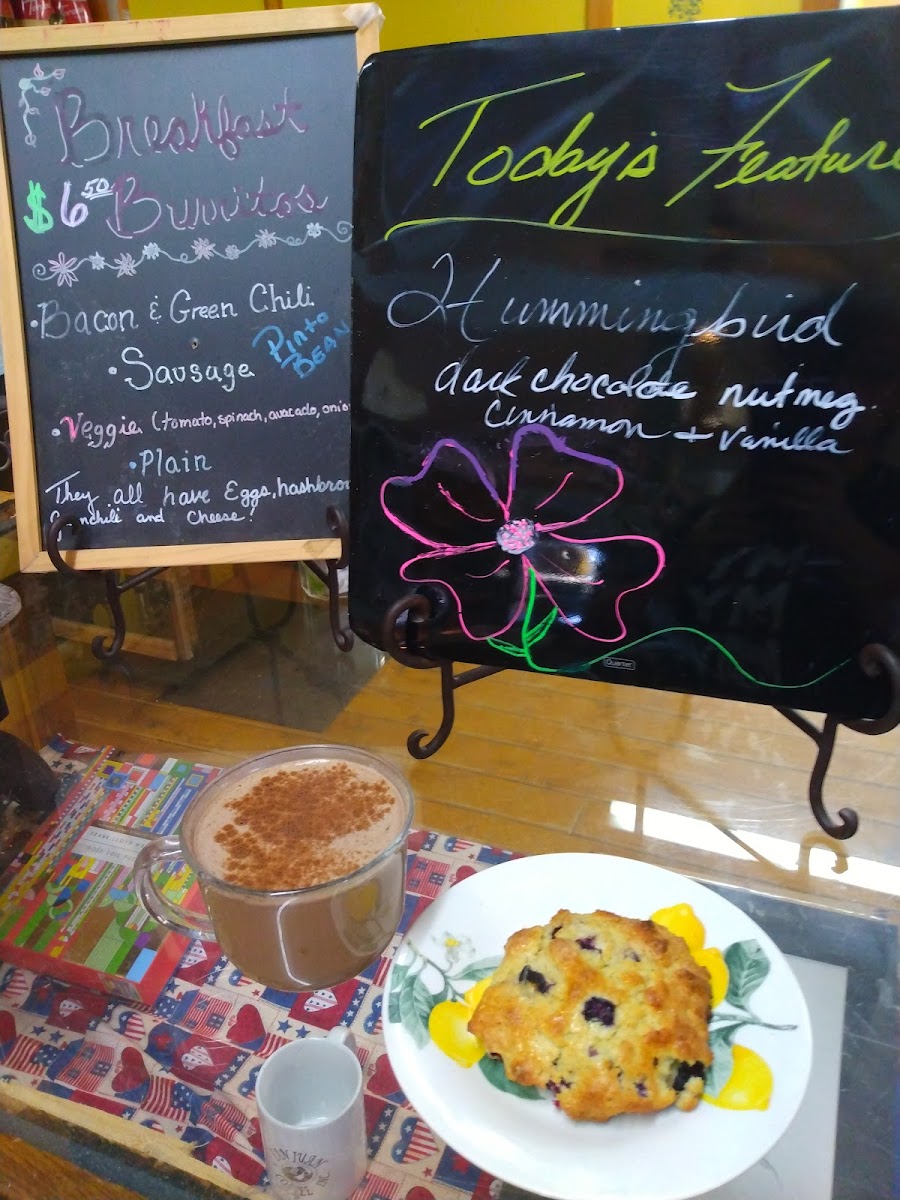 Breakfast
$6.50 Burritos
• Bacon & Green Chili
• Sausage
Pinto
BEAN
• Veggie (tomato, spinach, avacado, onio
• Plain
They all have Eggs, hashbrow
and cheese!
Today's Feature
Hummingbird
dark chocolate nutmeg.
Cinnamon + Vanilla
Quartet